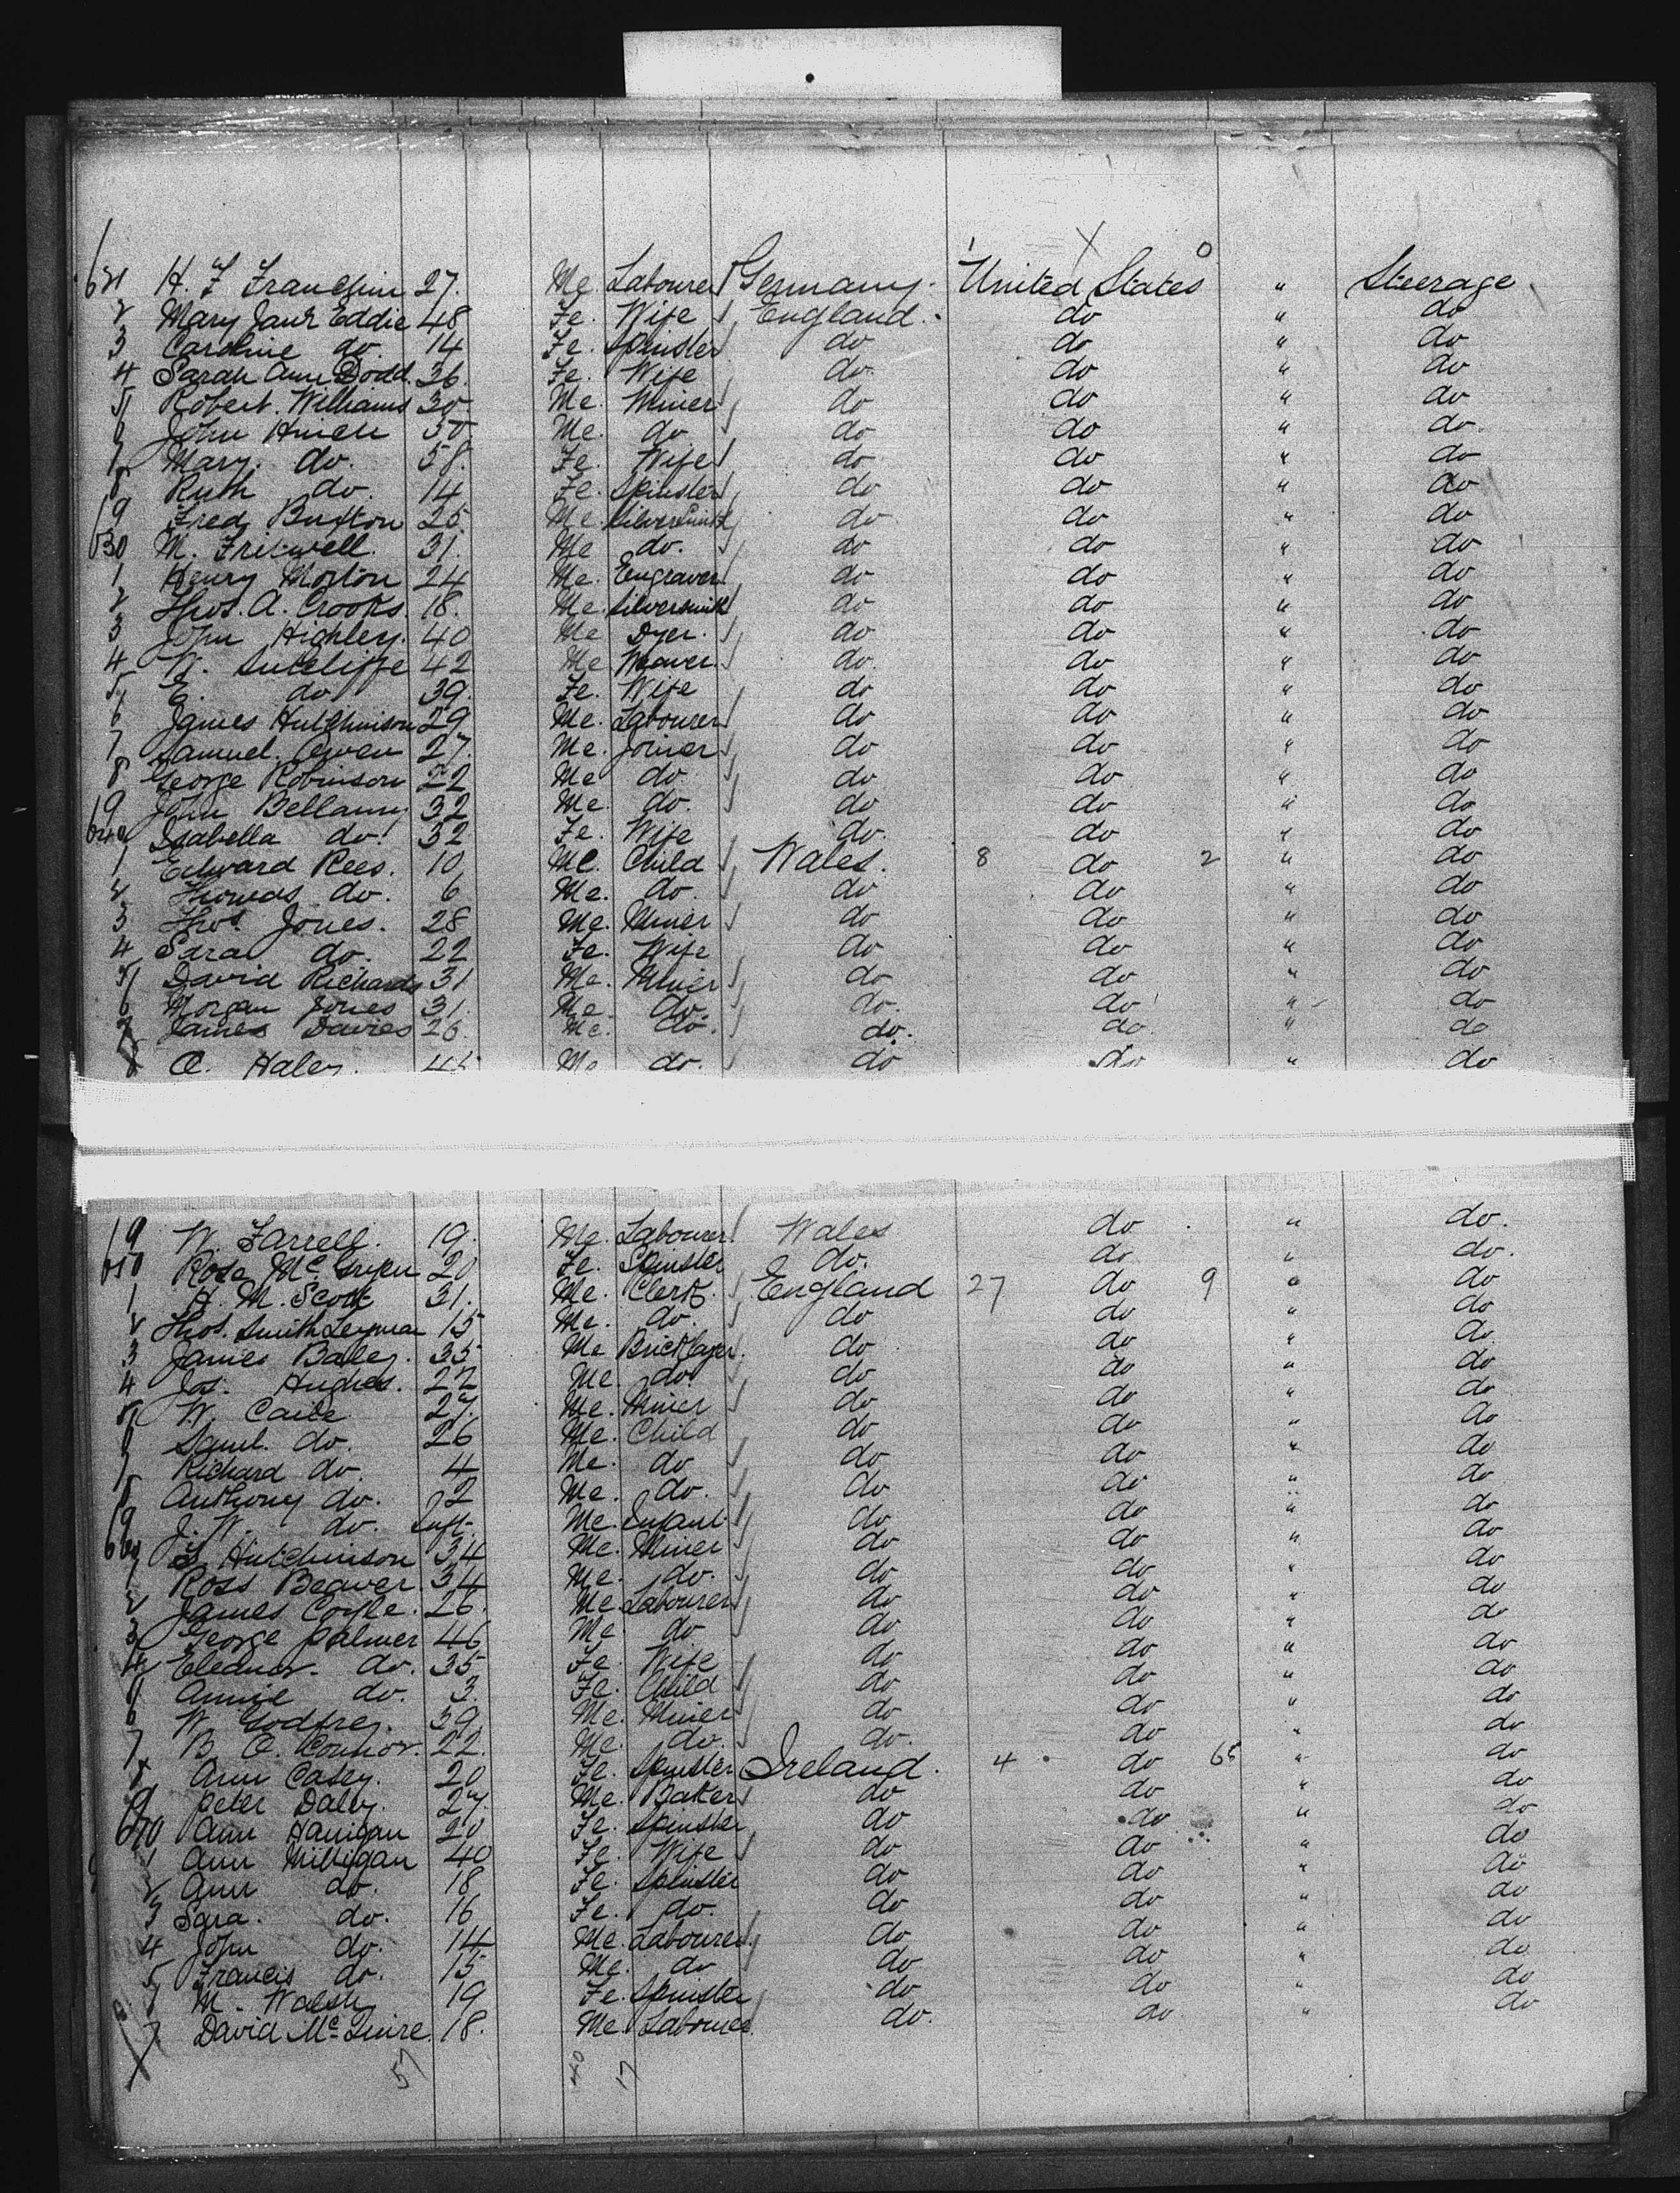 621 H. F Franclim 27. Me. Labourer Germany. 1 United States 0 " Steerage
2 Mary Jane Eddie 48 Fe. Wife England. do " do
3 Caroline do. 14 Fe. Spinster do do " do
4 Sarah Ann Dodd. 36. Fe. Wife do. do " do
5 Robert. Williams 30. Me. Miner do do " do
6 John 50 Me. do do do " do.
7 Mary. do. 58. Fe. Wife do do " do
8 Ruth do. 14 Fe. Spinster do do " do
9 Fred Buxton 25. Me. Silversmith do do " do
630 M. Friswell. 31. Me do. do do " do
1 Henry Morton 24 Me. Engraver do do " do
2 Thos. A. Crooks. 18. Me. Silversmith do do " do
3 John Highley. 40 Me Dyer. do do " do
4 W. Sutcliffe 42 Me Weaver. do. do " do
5 E. do 39. Fe. Wife do do " do
6 James Hutchinson 29 Me. Labourer do do " do
7 Samuel. Owen 27. Me. Joiner do do " do
8 George Robinson 22 Me do. do do " do
9 John Bellamy 32 Me. do. do do " do
640 Isabella do. 32 Fe. Wife do. do " do
1 Edward Rees. 10 Me. Child Wales. 8 do 2 " do
2 Thomas do. 6 Me. do. do do " do
3 Thos. Jones. 28 Me. Miner do do " do
4 Sara do. 22 Fe. Wife do do " do
5 David Richards 31 Me. Miner do do " do
6 Morgan Jones 31. Me. do. do. do " do
7 James Davies 26. Me. do. do. do. " do
8 O. Haley. 45 Me do. do do " do
9 W. Farrell. 19. Me. Labourer Wales do " do.
650 Rose Mc. 20 Fe. Spinster do. do " do.
1 H. M. Scott 31. Me. Clerk. England 27 do 9 " do
2 Thos. Smith 15 Me. do. do do " do
3 James Baley. 35 Me Bricklayer. do do " do
4 Jos. Hughes. 22 Me. do. do do " do
5 W. Caile 27. Me. Miner do do " do
6 Saml. do. 26 Me. Child do do " do
7 Richard do. 4 Me. do do do " do
8 Anthony do. 2 Me. do. do do " do
9 J. W. do. Inft. Me. Infant. do do " do
660 Hutchinson 34 Me. Miner do do " do
1 Ross Beaver 34 Me. do. do do " do
2 James Coyle. 26. Me Labourer do do " do
3 George Palmer 46 Me do do do " do
4 Eleanor. do. 35 Fe Wife do do " do
5 Annie do. 3. Fe. Child do do " do
6 W. Godfrey. 39. Me. Miner do do " do
7 B. O. Connor. 22. Me. do. do. do " do
8 Ann Casey. 20 Fe. Spinster Ireland. 4 do 65 " do
9 Peter Daley. 27. Me. Baker do do " do
670 Ann Hanigan 20 Fe. Spinster do do " do
1 Ann Milligan 40 Fe. Wife do do " do
2 Ann do. 18 Fe. Spinster do do " do
3 Sara. do. 16 Fe. do. do do " do
4 John do. 14 Me. Labourer. do do " do
5 Francis do. 15 Me. do do do " do
6 M. Walsh 19 Fe. Spinster do do " do
7 David Mc Guire 18. Me Labourer. do. do " do
57 40 17